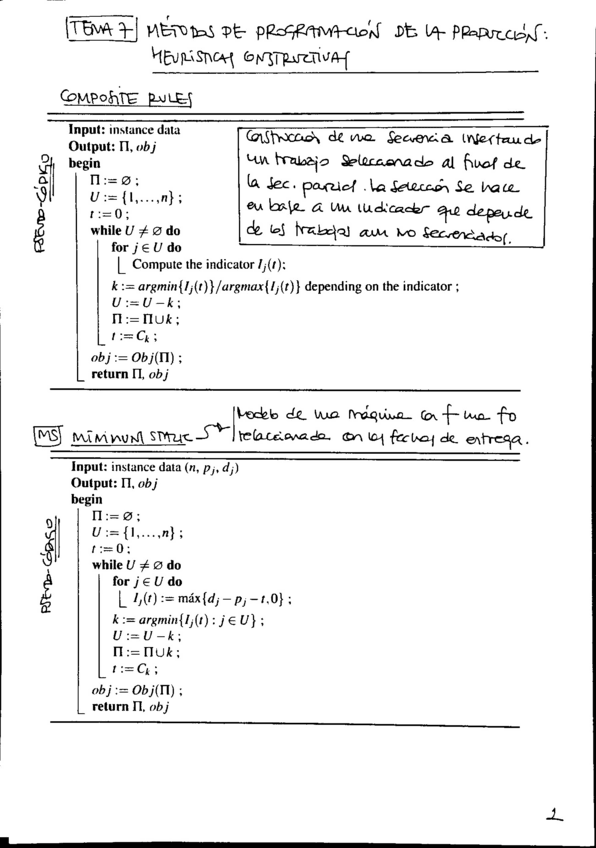 TEMA 7 MÉTODOS DE PROGRAMACIÓN DE LA PRODUCCIÓN:
HEURÍSTICAS CONSTRUCTIVAS
COMPOSITE RULES
PSEUDO-CÓDIGO
Input: instance data
Output: Π, obj
begin
Π := ∅ ;
U := {1,...,n} ;
t := 0 ;
while U ≠ ∅ do
for j ∈ U do
Compute the indicator Ij(t);
k := argmin{Ij(t)}/argmax{Ij(t)} depending on the indicator ;
U := U − k ;
Π := Π ∪ k ;
t := Ck ;
obj := Obj(Π) ;
return Π, obj
Construcción de una secuencia insertando
un trabajo seleccionado al final de
la sec. parcial. La selección se hace
en base a un indicador que depende
de los trabajos aun no secuenciados.
MS MINIMUM STATIC
Modelo de una máquina con una fo
relacionada con las fechas de entrega.
PSEUDO-CÓDIGO
Input: instance data (n, pj, dj)
Output: Π, obj
begin
Π := ∅ ;
U := {1,...,n} ;
t := 0 ;
while U ≠ ∅ do
for j ∈ U do
Ij(t) := máx{dj − pj − t,0} ;
k := argmin{Ij(t) : j ∈ U} ;
U := U − k ;
Π := Π ∪ k ;
t := Ck ;
obj := Obj(Π) ;
return Π, obj
1